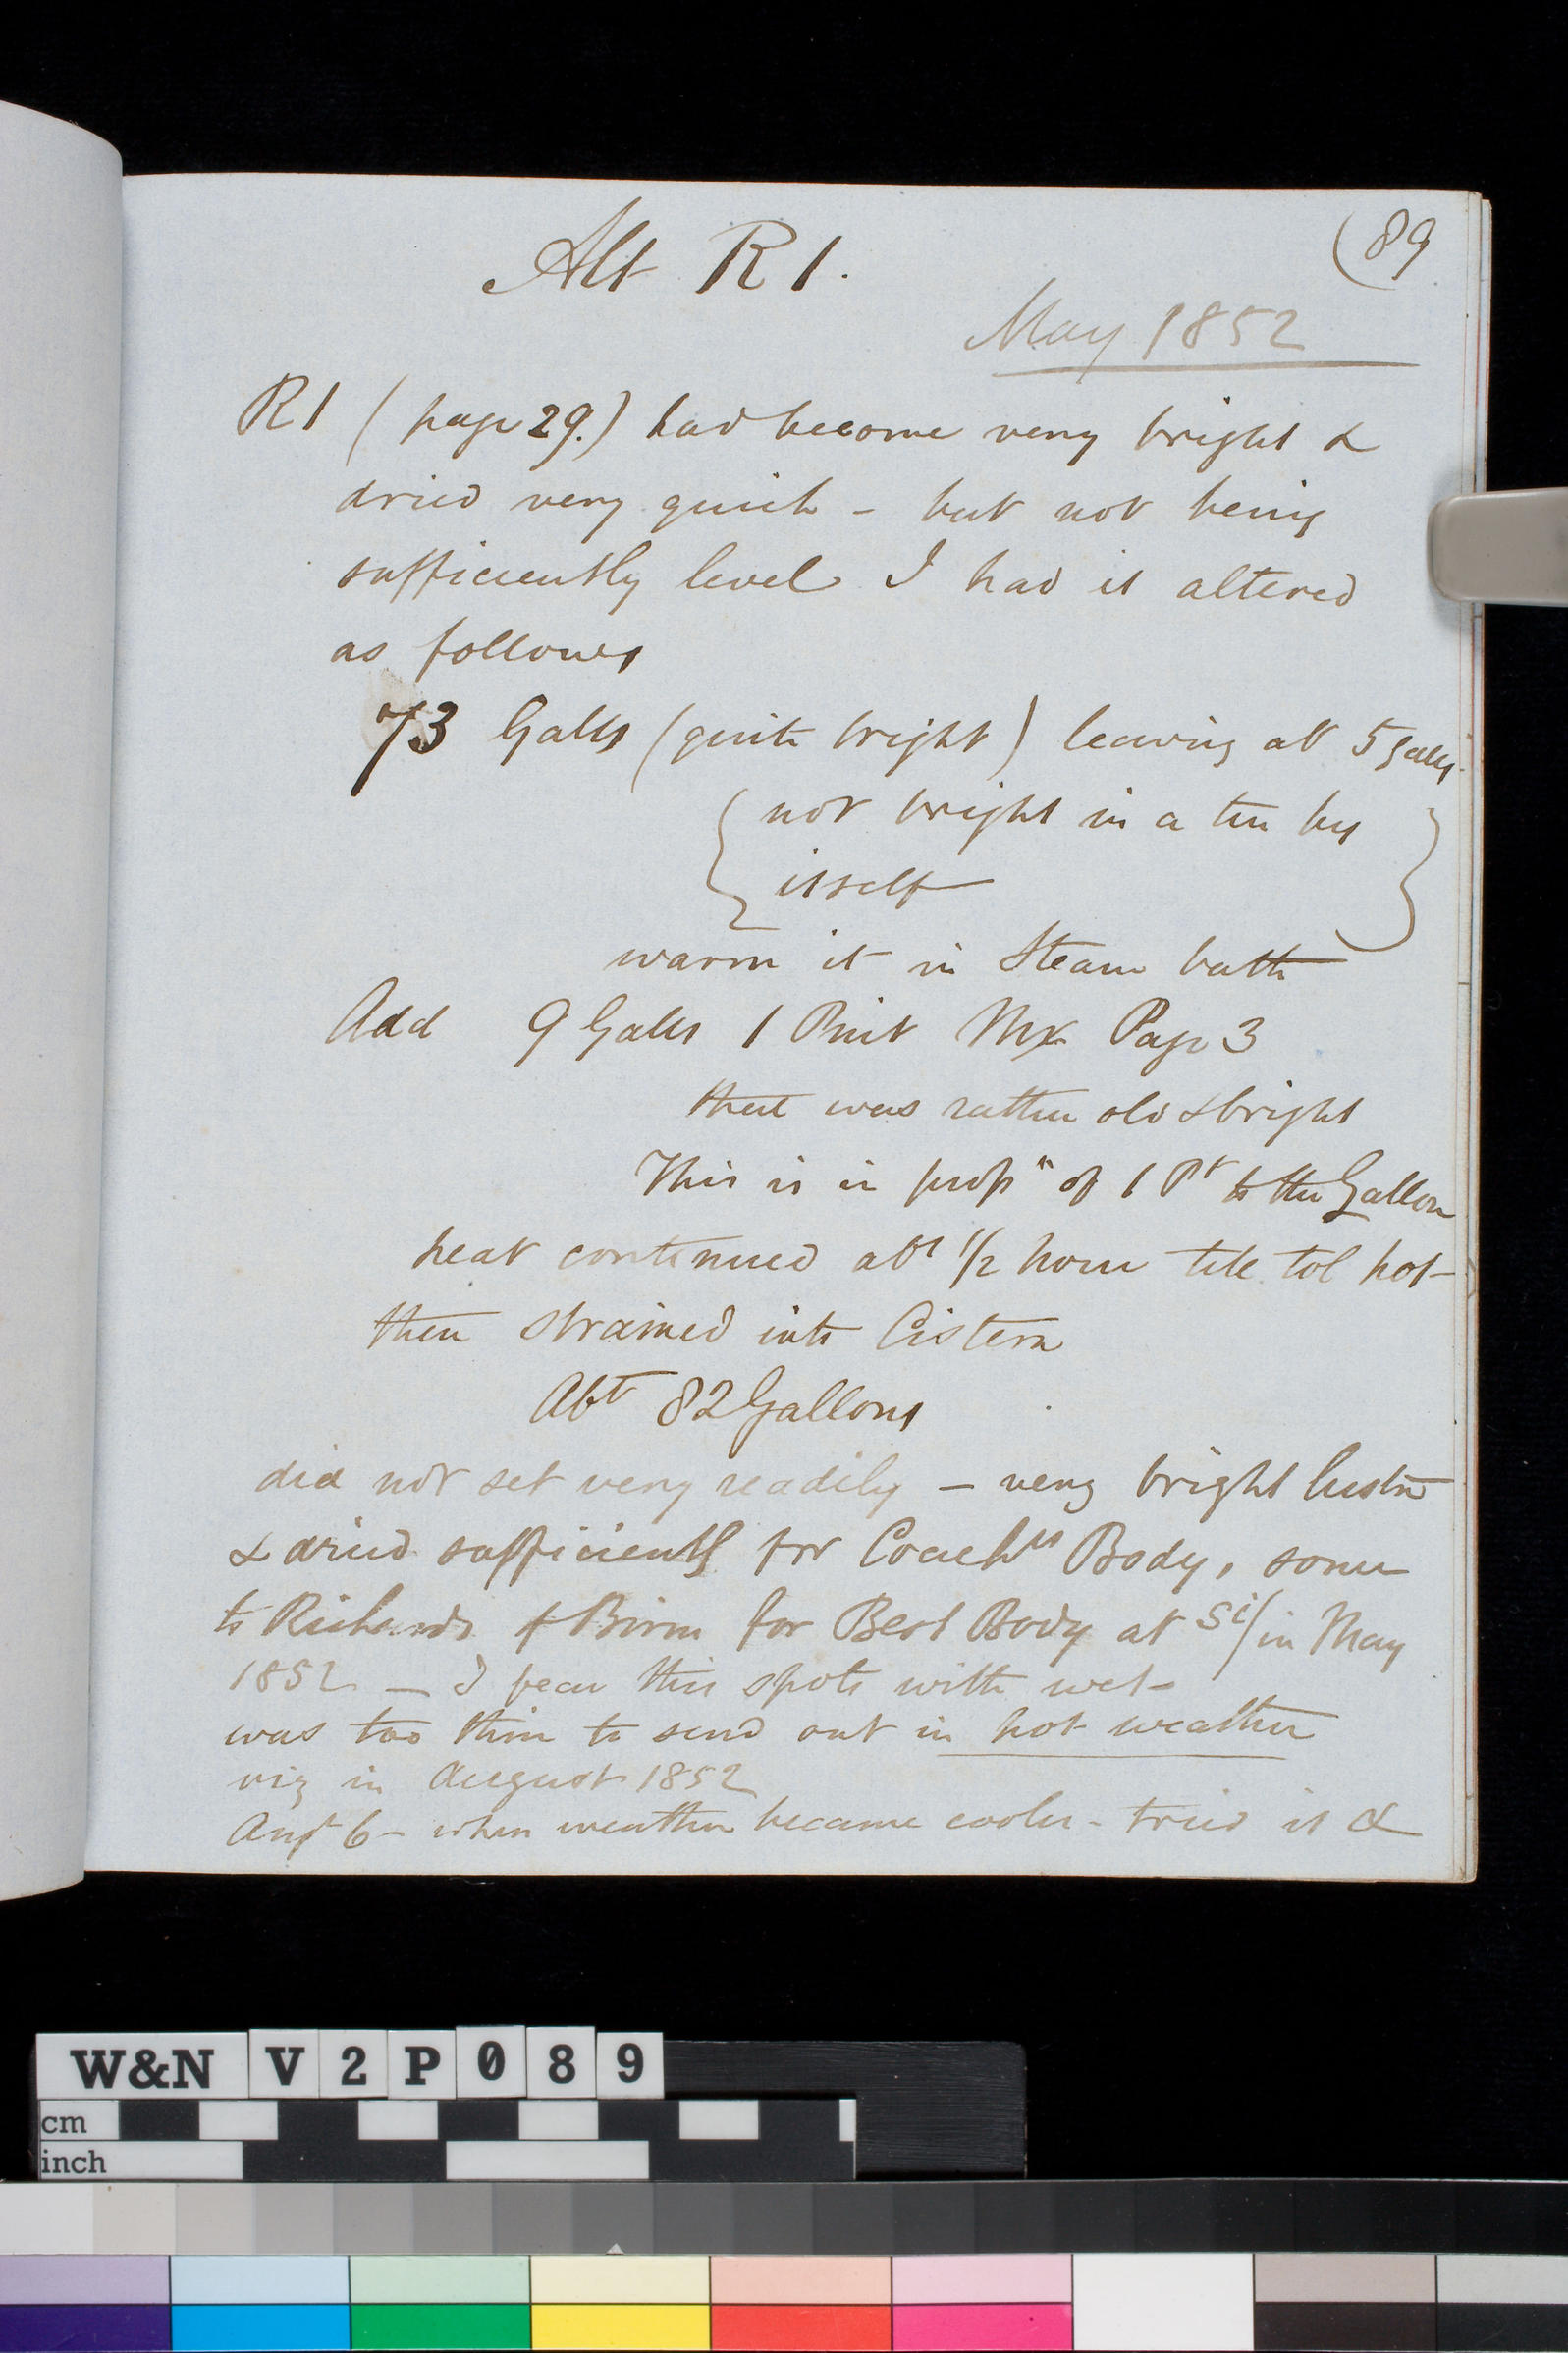 (89
Alt R1.
May 1852
R1 (page 29.) had become very bright &
dried very quick - but not being
sufficiently level I had it altered
as follows
73 Galls (quite bright) leaving abt 5 galls
not bright in a tin by
itself
warm it in Steam bath
Add 9 Galls 1 Pint Mx Page 3
that was rather old & bright
This is in propn of 1 Pt to the Gallon
heat continued abt 1/2 hour till tol hot
then strained into Cistern
Abt 82 Gallons
did not set very readily - very bright lustre
& dried sufficiently for Coachrs Body, some
to Richards Birm for Best Body at in May
1852 - I fear this spots with wet -
was too thin to send out in hot weather
viz in August 1852
Augt 6 - when weather became cooler - tried it &
W&N V2P089
cm
inch